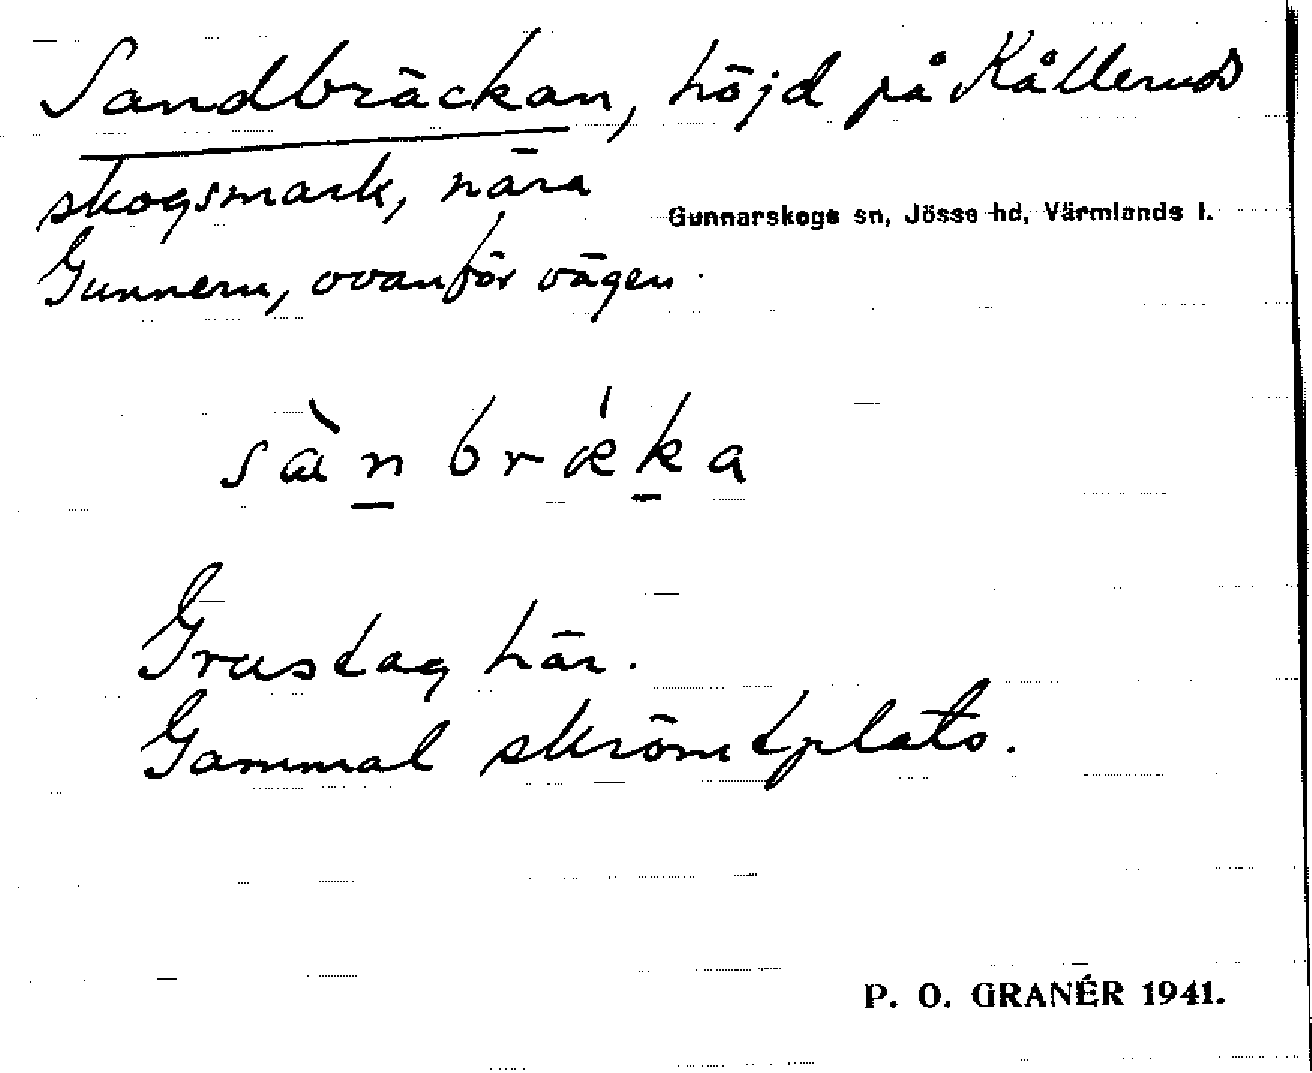 Sandbräckan, höjd på Kålleruds
skogsmark, nära
Gunnarskogs sn, Jösse hd, Värmlands l.
Gunneru, ovanför vägen.
sàn brǽka
Grustag här.
Gammal skrömtplats.
P. O. GRANÉR 1941.